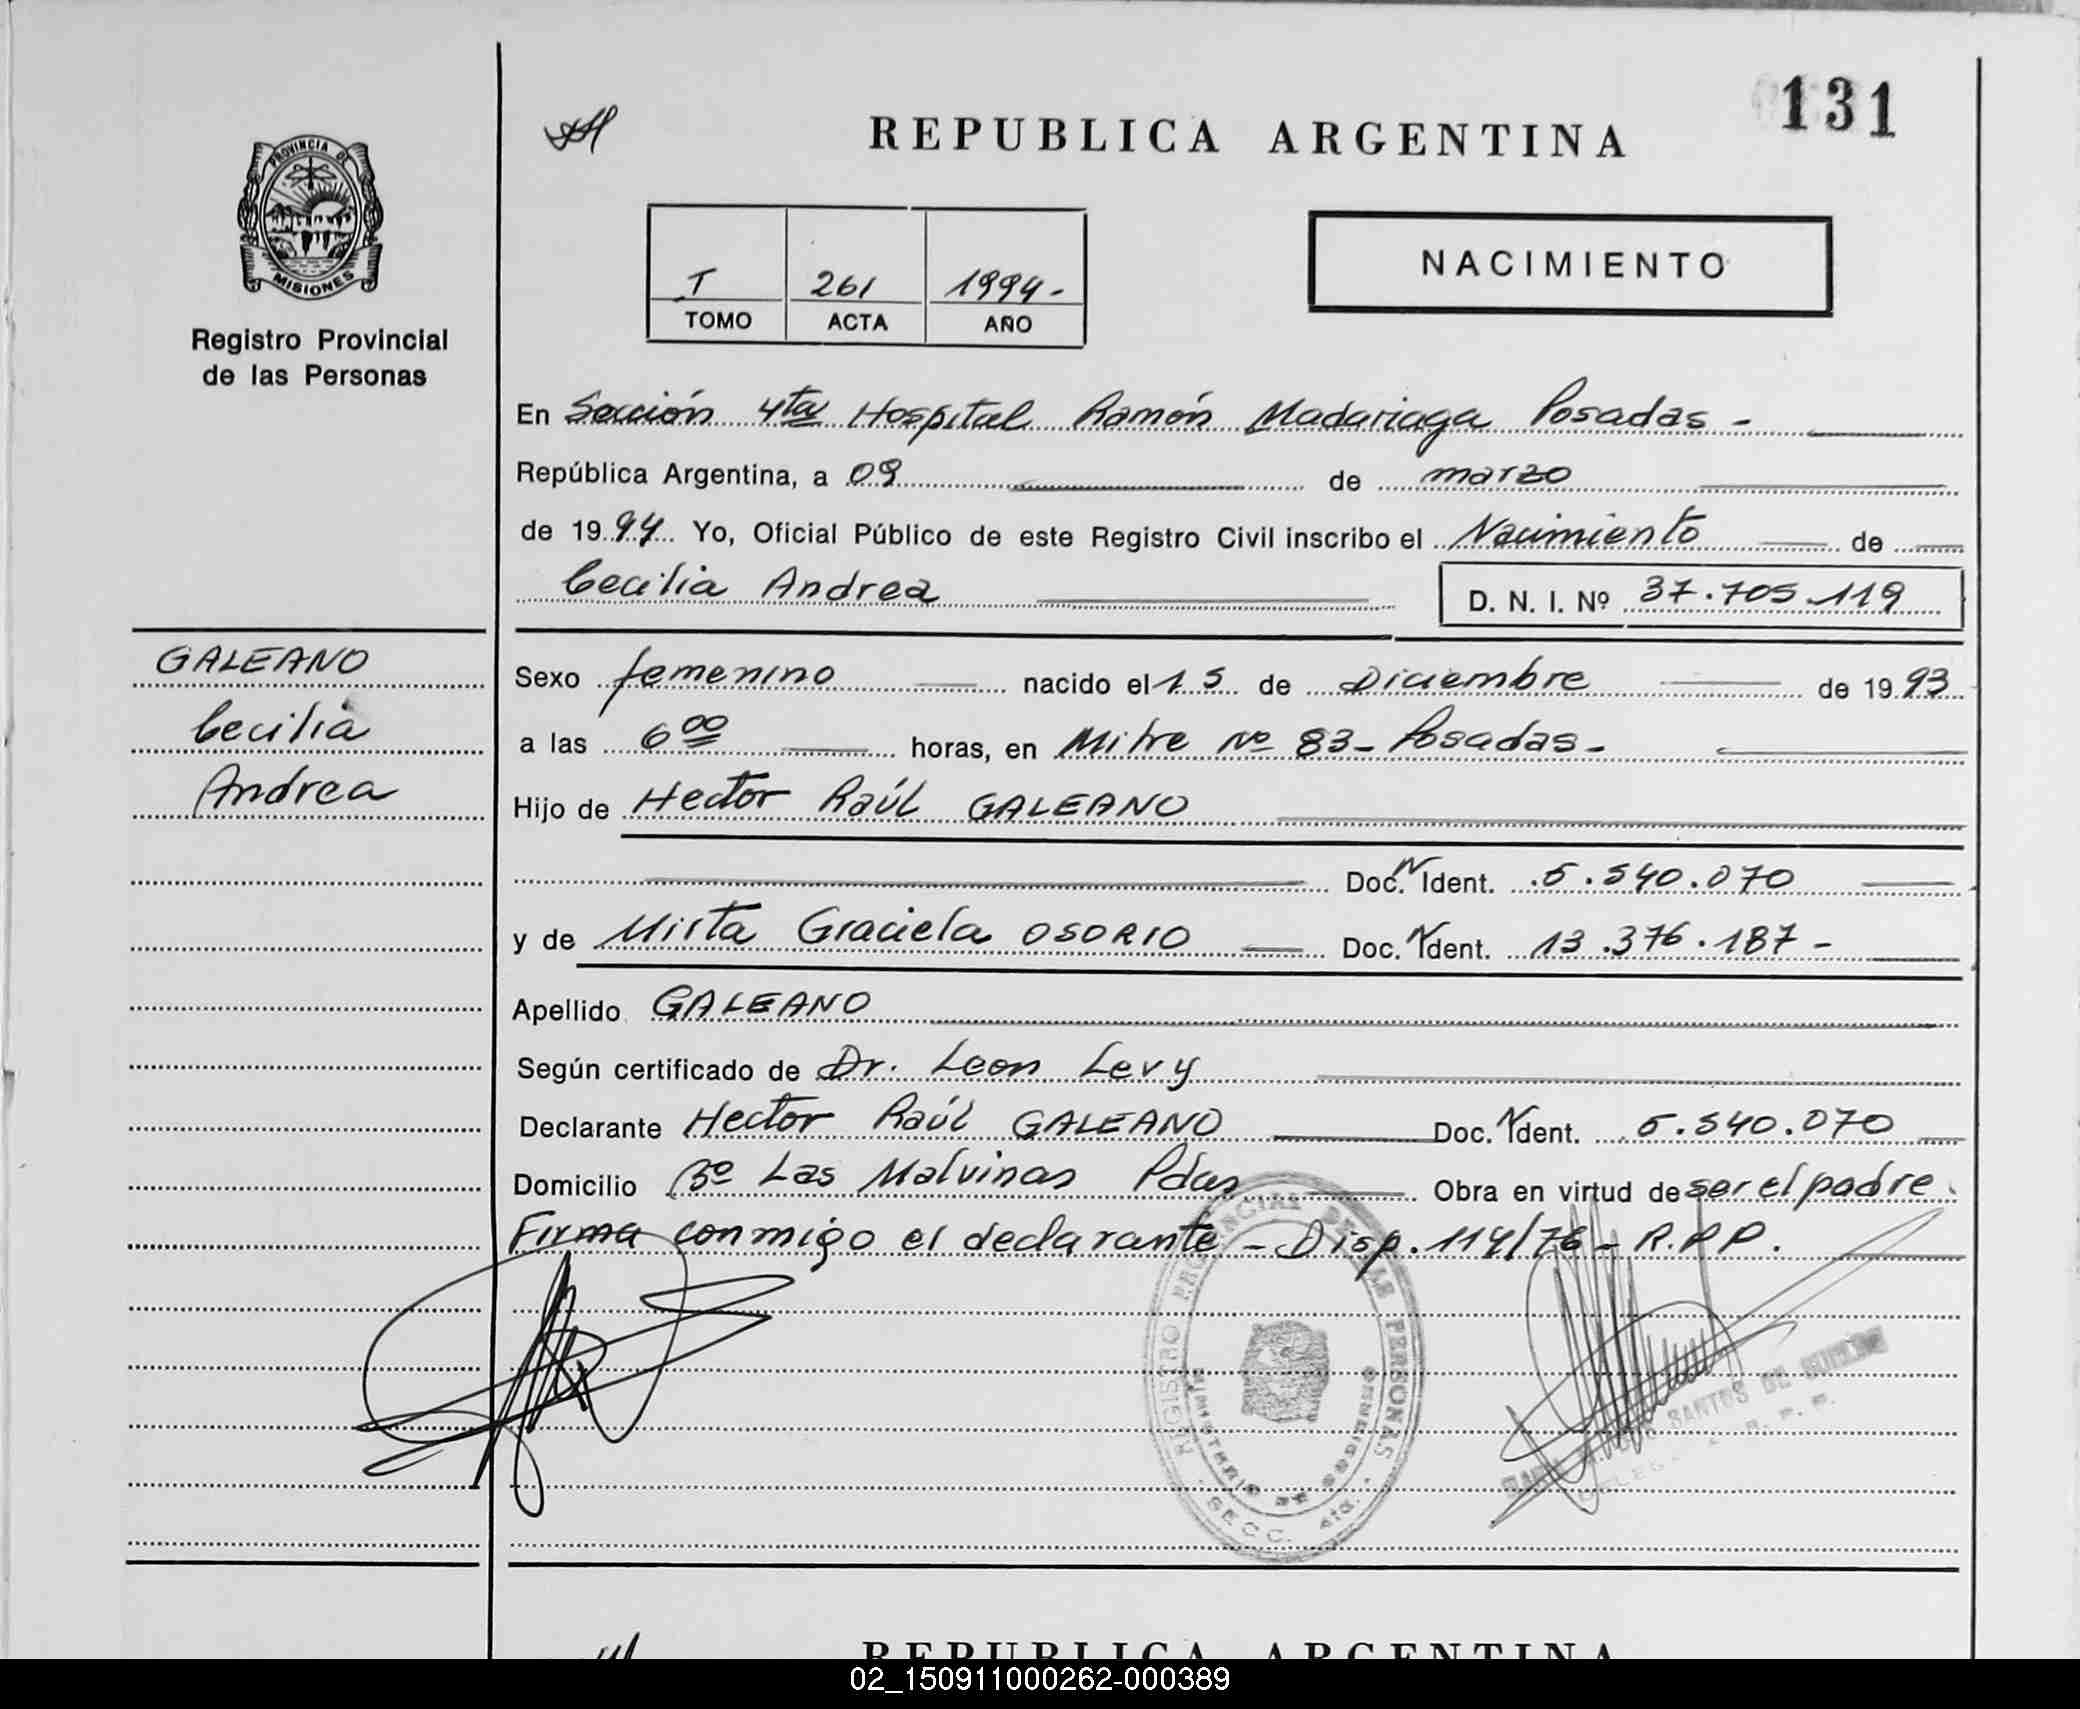 131
REPUBLICA ARGENTINA
PROVINCIA DE
MISIONES
Registro Provincial
de las Personas
T 261 1994-
TOMO ACTA AÑO
NACIMIENTO
En Sección 4ta Hospital Ramón Madariaga Posadas -
República Argentina, a 09 de marzo
de 1994 Yo, Oficial Público de este Registro Civil inscribo el Nacimiento de
Cecilia Andrea D. N. I. Nº 37.705.119
GALEANO
Cecilia
Andrea
Sexo femenino nacido el 15 de Diciembre de 1993
a las 6 00 horas, en Mitre Nº 83 - Posadas -
Hijo de Hector Raúl GALEANO
Doc. N Ident. 5.540.070
y de Mirta Graciela OSORIO Doc. N Ident. 13.376.187 -
Apellido GALEANO
Según certificado de Dr. Leon Levy
Declarante Hector Raúl GALEANO Doc. N Ident. 5.540.070
Domicilio Bº Las Malvinas Pdas Obra en virtud de ser el padre.
Firma conmigo el declarante - Disp. 114/76 - R.P.P.
REGISTRO PROVINCIAL DE LAS PERSONAS
MINISTERIO DE GOBIERNO
SECC. 4ta.
SANTOS DE
REPUBLICA ARGENTINA
02_150911000262-000389